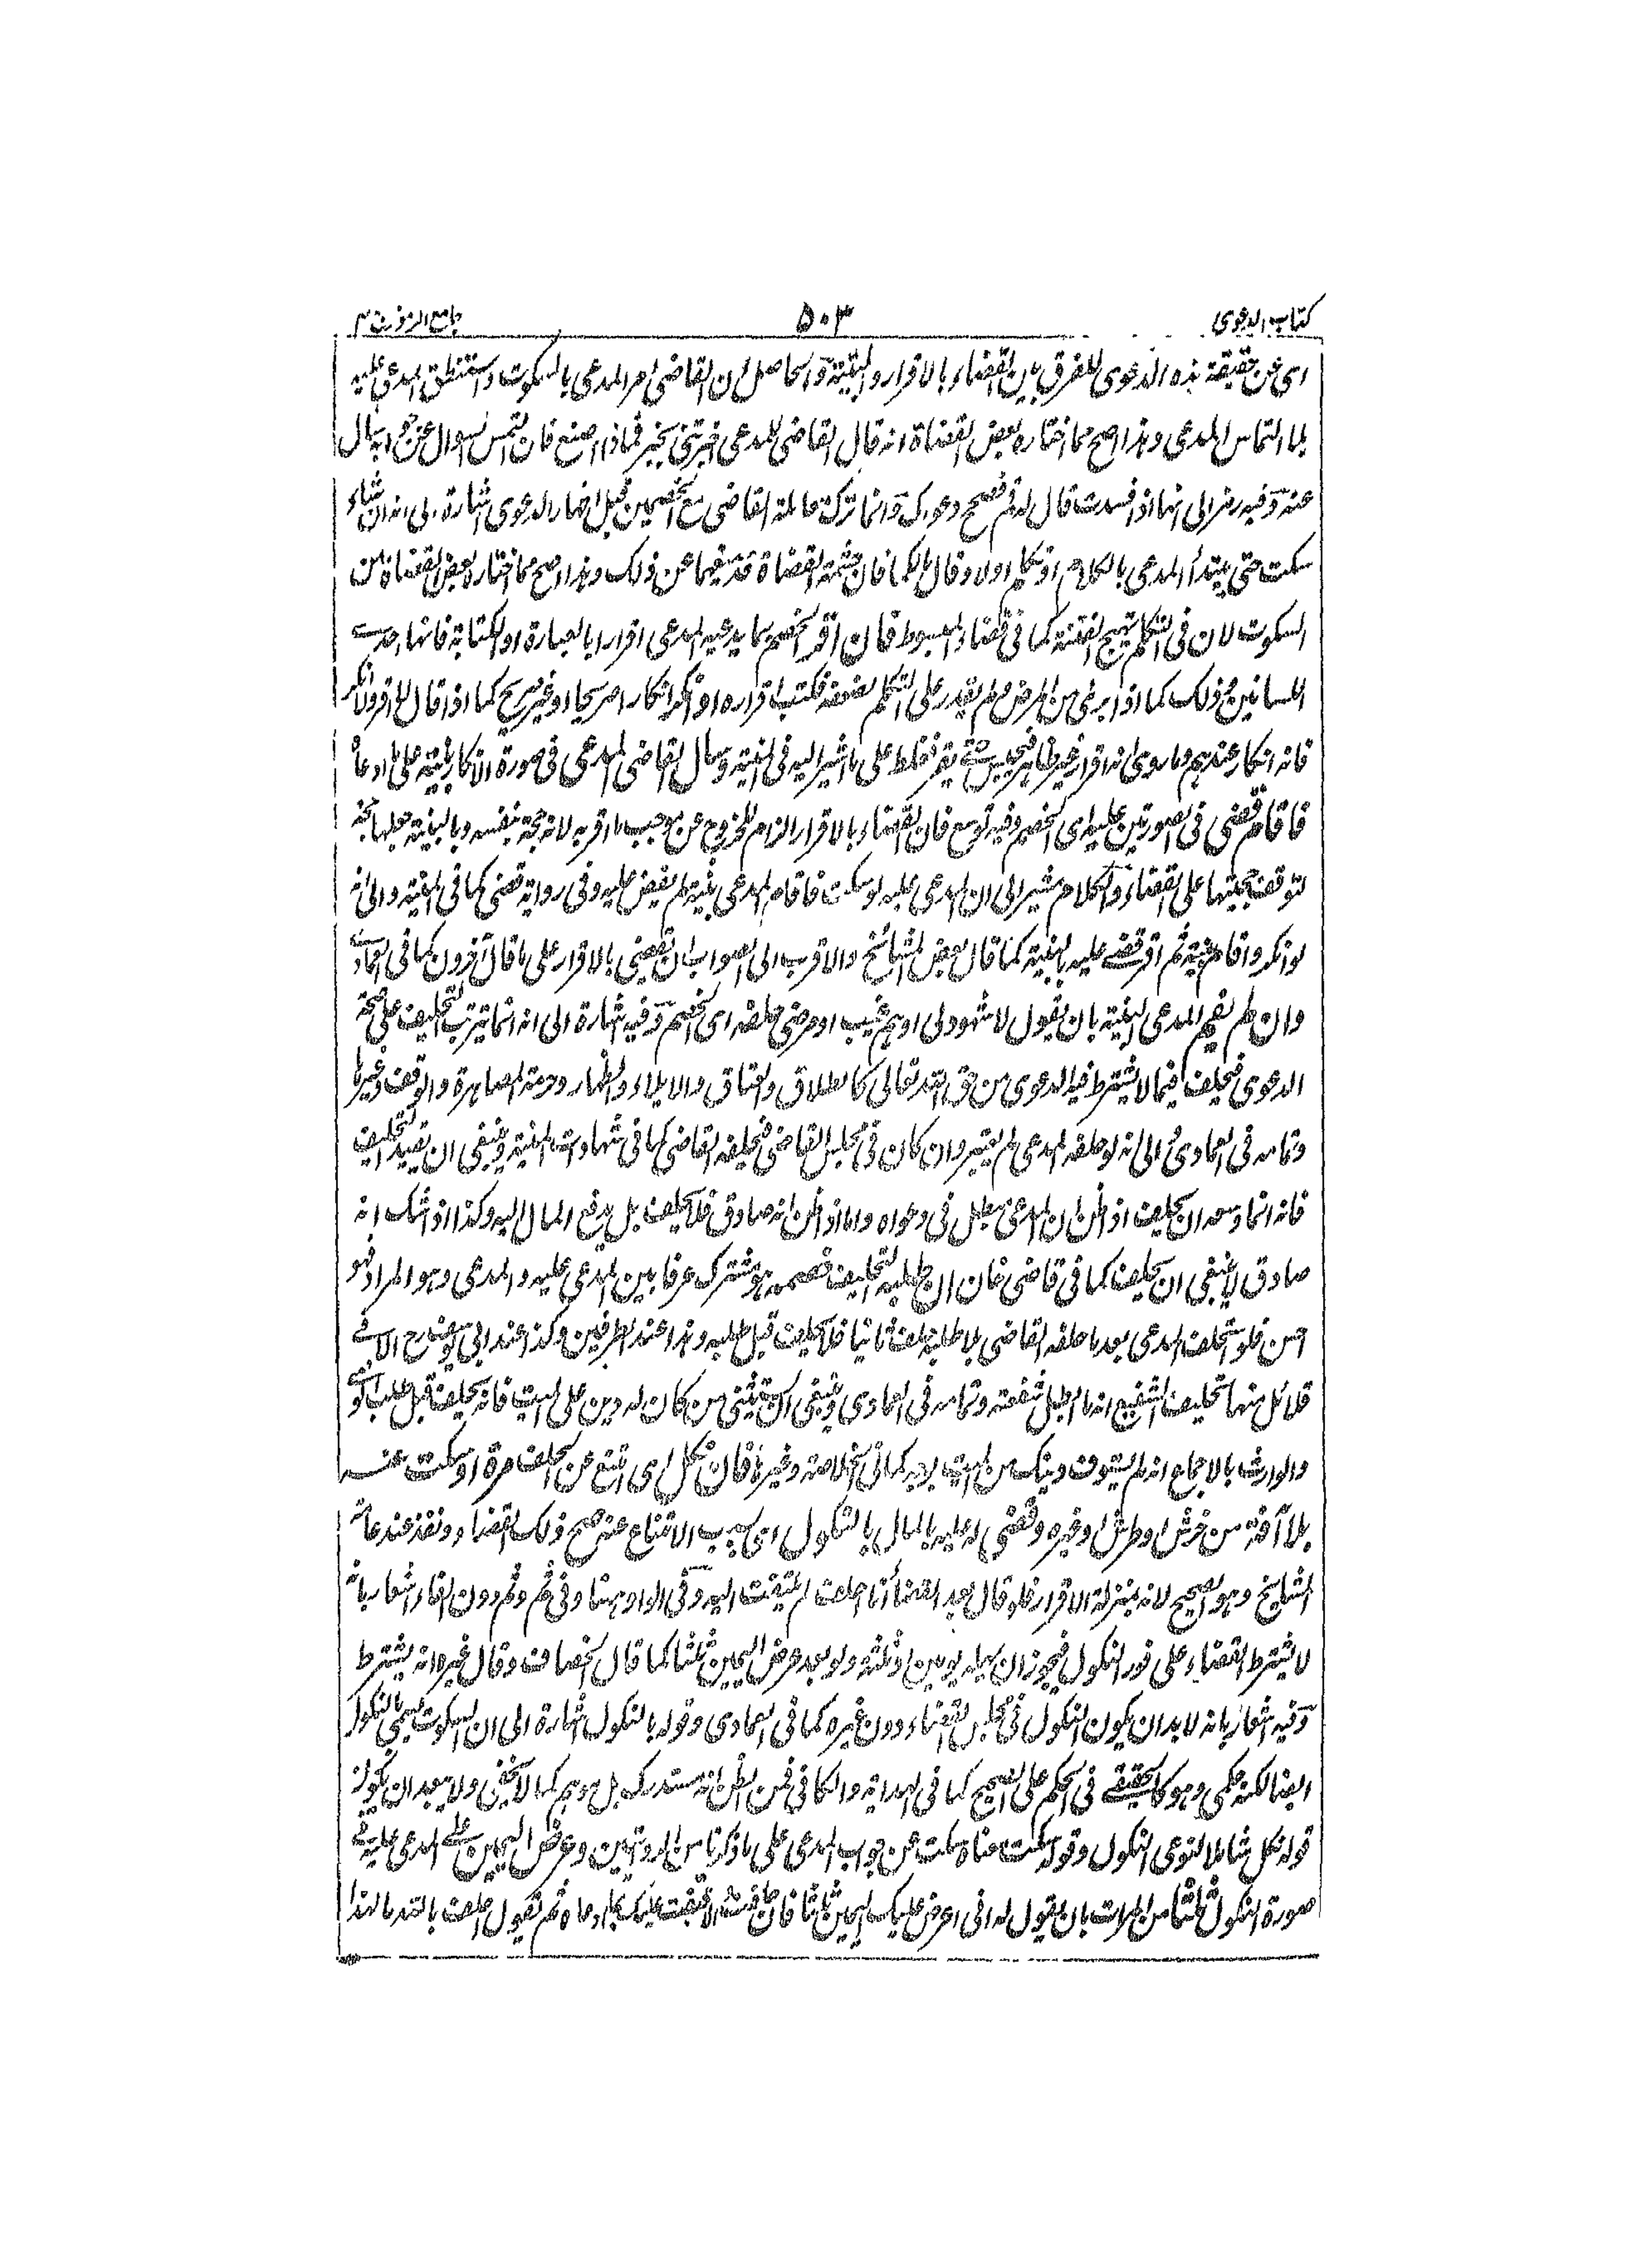 كتاب الدعوى ٥٠٣ جامع الرموز ج ٣
اى عن حقيقة هذه الدعوى للفرق بين القضاء بالاقرار والبينة والحاصل ان القاضى امر المدعى بالسكوت واستنطق المدعى عليه
بلا التماس المدعى وهذا اصح مما اختاره بعض القضاة انه قال القاضى للمدعى خبرتنى بخبر فماذا اصنع فان التمس السوال عن جوابه سأل
عنه وفيه رمز الى انها اذا فسدت قال له قم فصحح دعوىك وانما ترك معاملة القاضى مع الخصمين قبل اظهار الدعوى اشارة الى انه ان شاء
سكت حتى يبتدأ المدعى بالكلام او تكلم اولا وقال مالكما فان حشمة القضاة قد تمنعهما عن ذلك وهذا اصح مما اختاره بعض القضاة من
السكوت لان فى التكلم تهييج الفتنة كما فى قضاء المبسوط فان اقر الخصم بما يدعيه المدعى اقرارا بالعبارة او الكتابة فانها احدى
اللسانين وذلك كما اذا برئ من المرض ولم يقدر على التكلم لضعفه فكتب اقراره او انكر انكارا صريحا او غير صريح كما اذا قال لا اقر ولا انكر
فانه انكار عندهم وما روى انه اقرار غير ظاهر فيحبس حتى يقر فغلط على ما اشير اليه فى المنية وسأل القاضى المدعى فى صورة الانكار بينة على ما ادعاه
فاقام قضى فى الصورتين عليه اى الخصم وفيه توسع فان القضاء بالاقرار الزام للخروج عن موجب ما اقر به لانه حجة بنفسه وبالبينة جعلها حجة
لتوقف حجيتها على القضاء والكلام مشير الى ان المدعى عليه لو سكت فاقام المدعى بينة لم يقض عليه وفى رواية قضى كما فى المنية والى انه
لو انكر واقام بينة ثم اقر قضى عليه بالبينة كما قال بعض المشائخ والاقرب الى الصواب ان تقضى بالاقرار على ما قال آخرون كما فى العمادى
وان لم يقم المدعى البينة بان يقول لا شهود لى او هم غيب او مرضى حلفه اى الخصم وفيه اشارة الى انه انما يترتب التحليف على صحة
الدعوى فيحلف فيما لا يشترط فيه الدعوى من حق الله تعالى كالطلاق والعتاق والايلاء والظهار وحرمة المصاهرة والوقف وغيرها
وتمامه فى العمادى والى انه لو حلفه المدعى لم يعتبر وان كان فى مجلس القاضى فيحلفه القاضى كما فى شهادات المنية وينبغى ان يقيد التحليف
فانه انما وسعه ان يحلف اذا ظن ان المدعى مبطل فى دعواه واما اذا ظن انه صادق فلا يحلف بل يدفع المال اليه وكذا اذا شك انه
صادق لا ينبغى ان يحلف كما فى قاضى خان ان طلبه التحليف خصمه هو مشترك عرفا بين المدعى عليه والمدعى وهو المراد فهو
احسن فلو استحلف المدعى بعد ما حلفه القاضى بلا طلبه حلف ثانيا فلا يحلف قبل طلبه وهذا عند الطرفين وكذا عند ابى يوسف رح الا فى
قلائل منها تحليف الشفيع انه ما ابطل شفعته وتمامه فى العمادى وينبغى ان يستثنى من كان له دين على الميت فانه يحلف قبل طلب الوصى
والوارث بالاجماع انه لم يستوف دينك من الميت بوجه كما فى الخلاصة وغيرها فان نكل اى امتنع عن الحلف مرة او سكت عنه
بلا آفة من خرس او طرش او غيره وقضى له عليه بالمال بالنكول اى بسبب الامتناع عنه صح ذلك القضاء ونفذ عند عامة
المشايخ وهو الصحيح لانه بمنزلة الاقرار فلو قال بعد القضاء انا احلف لم يلتفت اليه وفى الواو هنا وفى ثم وثم دون الفاء اشعار بانه
لا يشترط القضاء على فور النكول فيجوز ان يمهله يومين او ثلثة ولو بعد عرض اليمين ثلثا كما قال الخصاف وقال غيره انه يشترط
وفيه اشعار بانه لا بد ان يكون النكول فى مجلس القضاء دون غيره كما فى العمادى وقوله بالنكول اشارة الى ان السكوت يسمى بالنكول
ايضا لكنه حكمى وهو كالحقيقى فى الحكم على الصحيح كما فى الهداية والكافى فمن الظن انه مستدرك بل وهم كما لا يخفى ولا يبعد ان يكون
قوله نكل شاملا لنوعى النكول وقوله سكت معناه سكت عن جواب المدعى على ما ذكرنا من الروايتين وعرض اليمين على المدعى عليه فى
صورة النكول ثلثا من المرات بان يقول له انى اعرض عليك اليمين ثلثا فان حلفت والا قضيت عليك بما ادعاه ثم يقول احلف بالله ما لهذا